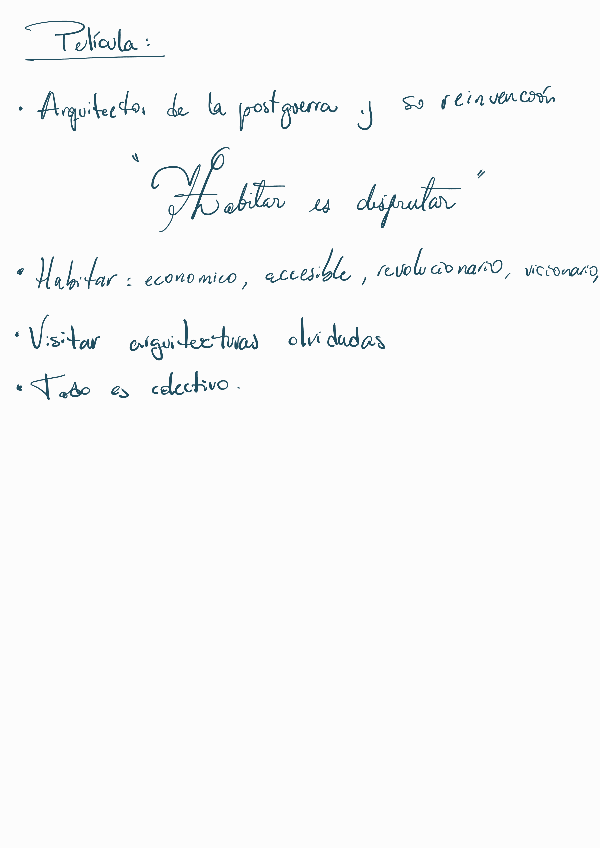 Película:
• Arquitectos de la postguerra y so reinvención
"Habitar es disfrutar"
• Habitar: economico, accesible, revolucionario, vicionario,
• Visitar arquitecturas olvidadas
• Todo es colectivo.